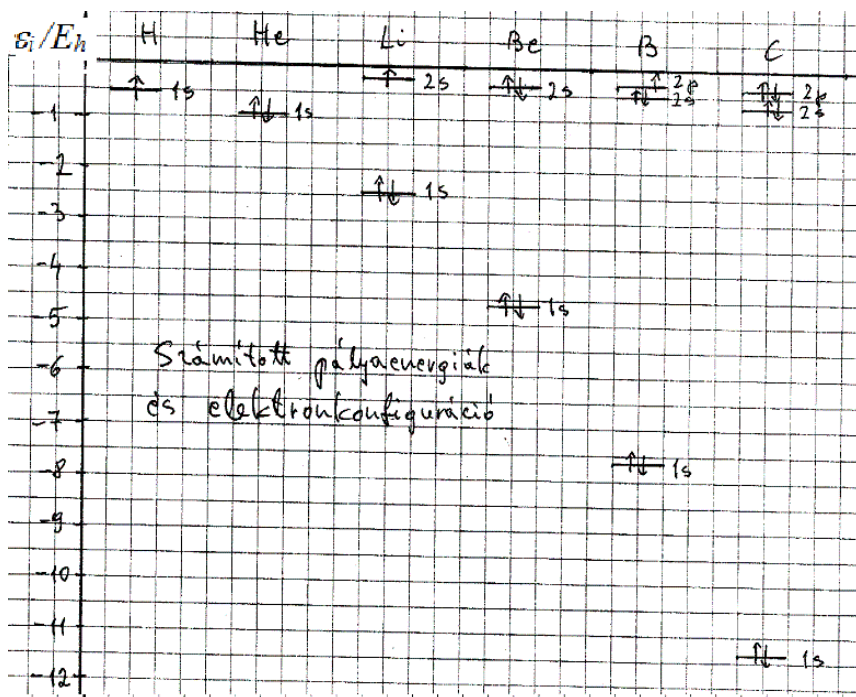 εᵢ/Eₕ H He Li Be B C
↑ 2s
↑ 1s
↑↓ 2s
↑ 2p
↑↓ 2s
↑↓ 2p
↑↓ 2s
-1
↑↓ 1s
-2
↑↓ 1s
-3
-4
↑↓ 1s
-5
Számított pályaenergiák
-6
és elektronkonfiguráció
-7
↑↓ 1s
-8
-9
-10
-11
↑↓ 1s
-12